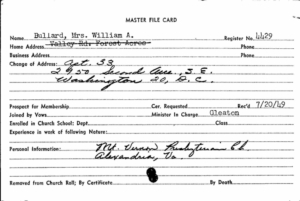 MASTER FILE CARD
Name Bullard, Mrs. William A. Register No. 4429
Home Address Valley Rd. Forest Acres Phone
Business Address Phone
Change of Address: Apt. 33
2950 Second Ave., S.E.
Washington 20, D.C.
Prospect for Membership Cer. Requested Rec'd 7/20/49
Joined by Vows Minister in Charge Gleaton
Enrolled in Church School: Dept. Class
Experience in work of following Nature:
Personal Information: Mt. Vernon Presbyterian Ch.
Alexandria, Va.
Removed from Church Roll; By Certificate By Death